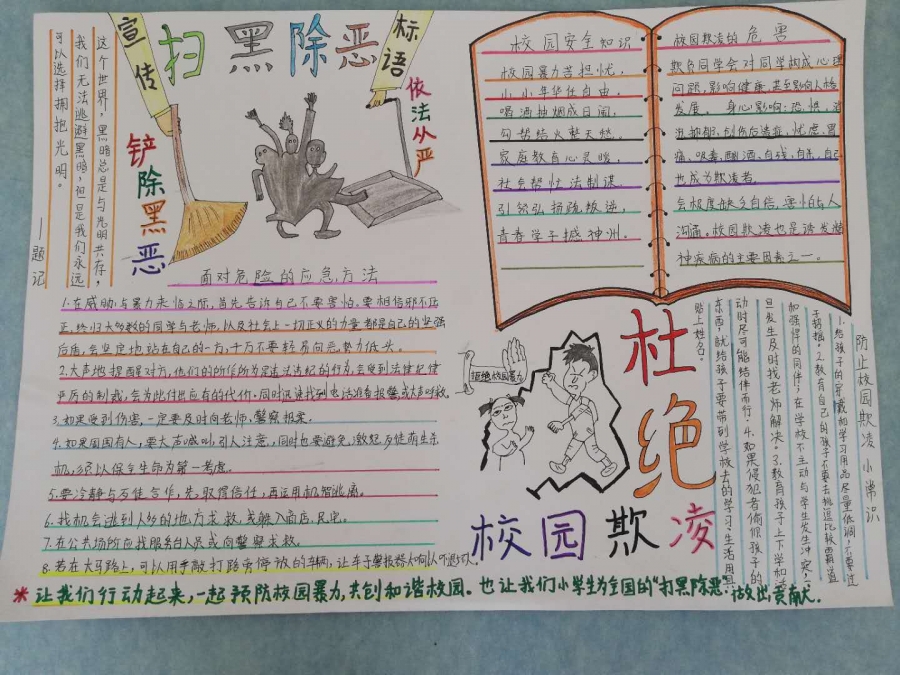 扫黑除恶
宣传
标语
铲除黑恶
依法从严
这个世界，黑暗总是与光明共存，
我们无法逃避黑暗，但是我们永远
可以选择拥抱光明。
——题记
校园安全知识
校园暴力苦担忧，
小小年华任自由。
喝酒抽烟成日闹，
勾帮结火整天愁。
家庭教育心灵暖，
社会帮忙法制谋。
引然弘扬疏叛逆，
青春学子撼神州。
校园欺凌的危害
欺负同学会对同学构成心理
问题，影响健康，甚至影响人格
发展。身心影响：恐惧、消
沉抑郁、创伤后遗症、忧虑、胃
痛、吸毒、酗酒、自残、自杀、自己
也成为欺凌者。
会极度缺乏自信、害怕与人
沟通。校园欺凌也是诱发精
神疾病的主要因素之一。
面对危险的应急方法
1.在威胁与暴力来临之际，首先告诉自己不要害怕。要相信邪不压
正，终归大多数的同学与老师，以及社会上一切正义的力量都是自己的坚强
后盾，会坚定地站在自己的一方，千万不要轻易向恶势力低头。
2.大声地提醒对方，他们的所作所为是违法违纪的行为，会受到法律纪律
严厉的制裁，会为此付出应有的代价。同时迅速找到电话准备报警或大声呼救。
3.如果受到伤害，一定要及时向老师、警察报案。
4.如果周围有人，要大声喊叫，引人注意，同时也要避免激起歹徒萌生杀
机，须以保全生命为第一考虑。
5.要冷静与歹徒合作，先取得信任，再运用机智逃离。
6.找机会逃到人多的地方求救，或躲入商店、民宅。
7.在公共场所应找服务台人员或向警察求救。
8.若在大马路上，可以用手敲打路旁停放的车辆，让车子警报器大响以吓退歹人。
拒绝校园暴力
杜绝
校园欺凌
防止校园欺凌小常识
1.给孩子的穿戴和学习用品尽量低调，不要过
于招摇。2.教育自己的孩子不要去挑逗比较霸道
和强悍的同伴，在学校不主动与学生发生冲突，
旦发生及时找老师解决。3.教育孩子上下学和活
动时尽可能结伴而行。4.如果侵犯者偷你孩子的
东西，就给孩子要带到学校去的学习、生活用品
贴上姓名。
*让我们行动起来，一起预防校园暴力，共创和谐校园。也让我们小学生为全国的“扫黑除恶”做出贡献。